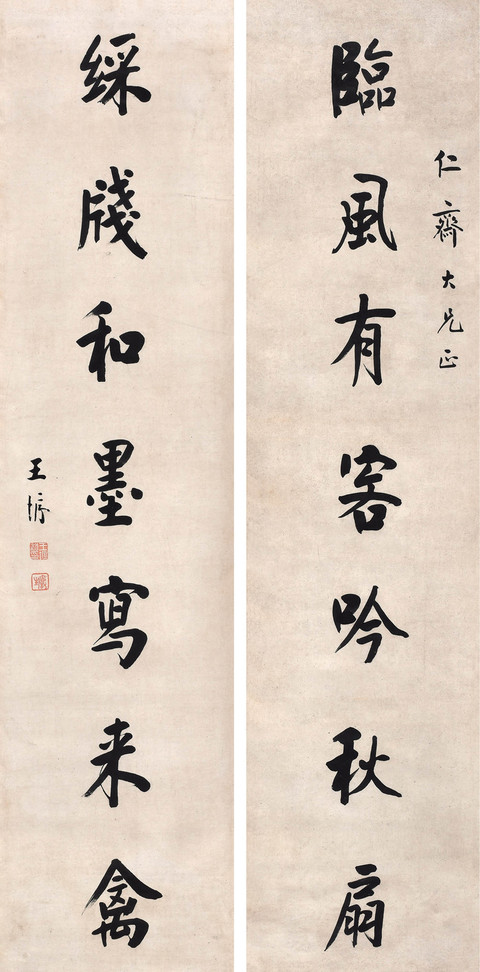 仁齋大兄正
臨風有客吟秋扇
綵牋和墨寫来禽
王垿